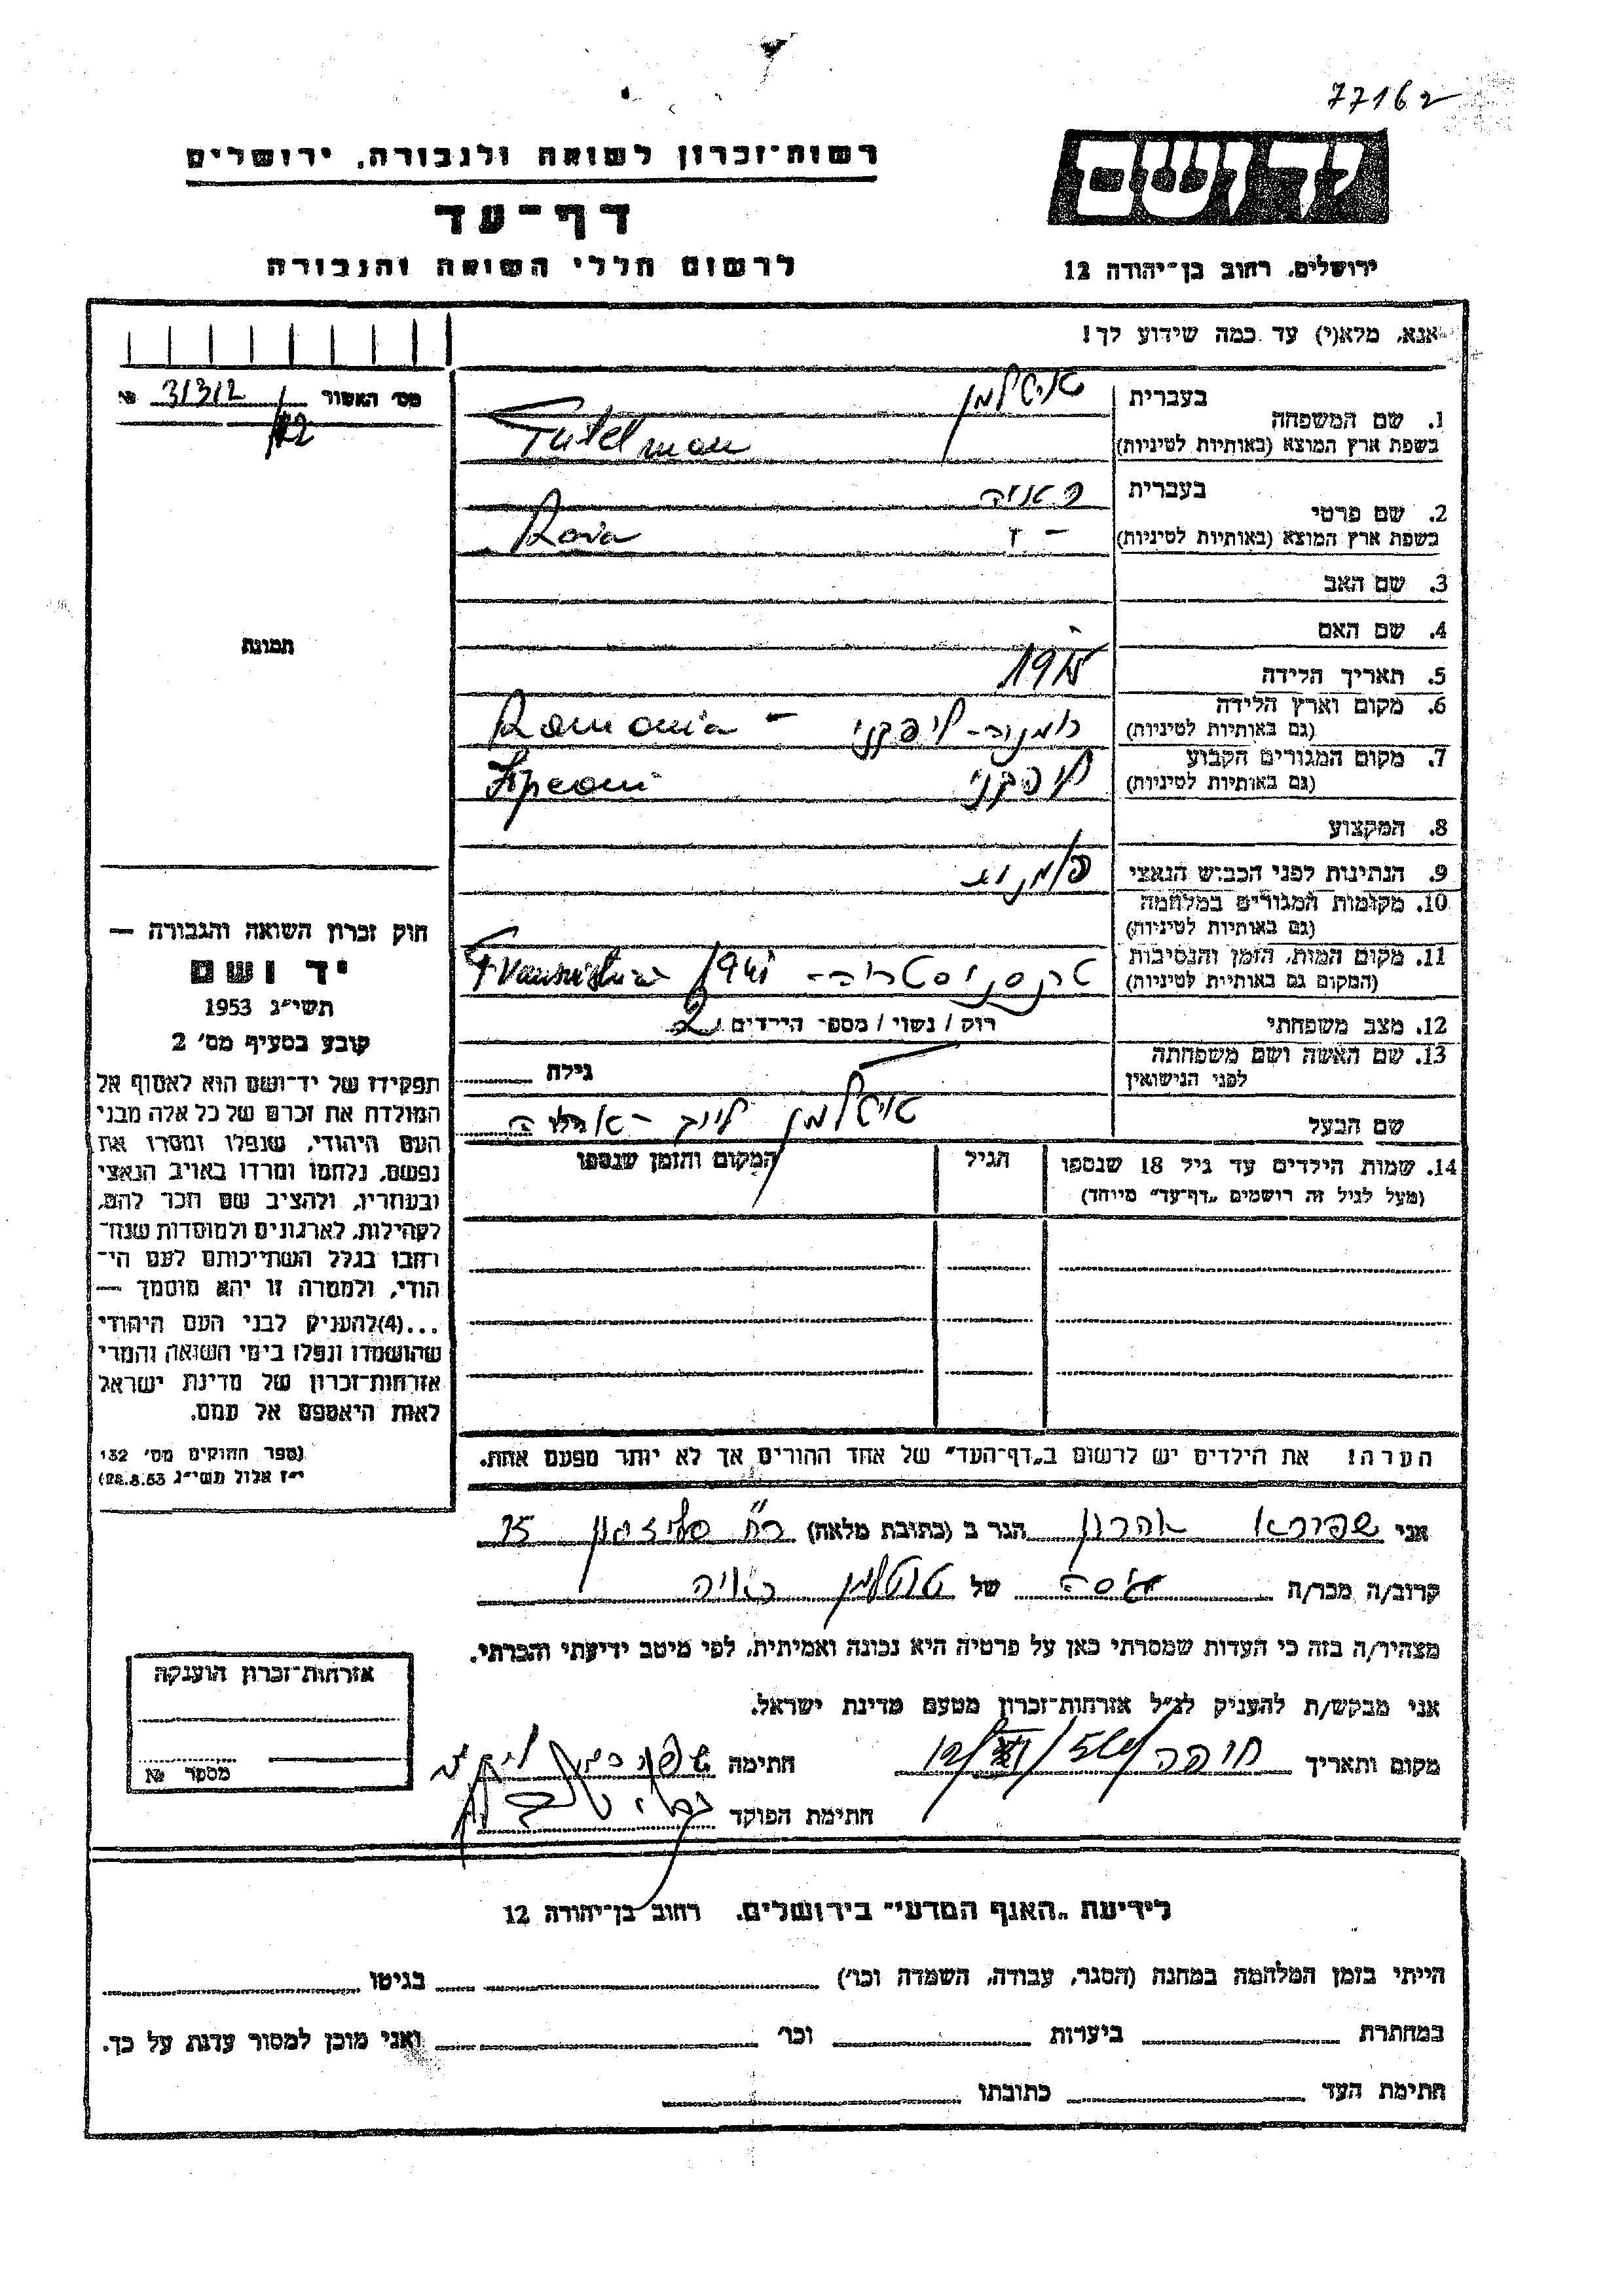 77162
יד ושם
רשות-זכרון לשואה ולגבורה, ירושלים
דף-עד
לרשום חללי השואה והגבורה
ירושלים, רחוב בן-יהודה 12
אנא, מלא(י) עד כמה שידוע לך!
מס' האשור 31312 №
בעברית
1. שם המשפחה
בשפת ארץ המוצא (באותיות לטיניות)
בעברית
2. שם פרטי
בשפת ארץ המוצא (באותיות לטיניות)
3. שם האב
4. שם האם
5. תאריך הלידה
6. מקום וארץ הלידה רומניה - ליפקני - Romania
(גם באותיות לטיניות)
7. מקום המגורים הקבוע ליפקני Lipcani
(גם באותיות לטיניות)
8. המקצוע
9. הנתינות לפני הכבוש הנאצי רומניה
10. מקומות המגורים במלחמה
(גם באותיות לטיניות)
11. מקום המות, הזמן והנסיבות טרנסניסטריה - 1941 Transnistria
(המקום גם באותיות לטיניות)
12. מצב משפחתי רוק / נשוי / מספר הילדים 2
13. שם האשה ושם משפחתה
לפני הנישואין
גילה
שם הבעל
14. שמות הילדים עד גיל 18 שנספו
(מעל לגיל זה רושמים "דף-עד" מיוחד)
הגיל
המקום והזמן שנספו
הערה: את הילדים יש לרשום ב"דף-העד" של אחד ההורים אך לא יותר מפעם אחת.
תמונה
חוק זכרון השואה והגבורה —
יד ושם
תשי"ג 1953
קובע בסעיף מס' 2
תפקידו של יד-ושם הוא לאסוף אל
המולדת את זכרם של כל אלה מבני
העם היהודי, שנפלו ומסרו את
נפשם, נלחמו ומרדו באויב הנאצי
ובעוזריו, ולהציב שם וזכר להם,
לקהילות, לארגונים ולמוסדות שנח-
רחבו בגלל השתייכותם לעם הי-
הודי, ולמטרה זו יהא מוסמך —
...(4)להעניק לבני העם היהודי
שהושמדו ונפלו בימי השואה והמרי
אזרחות-זכרון של מדינת ישראל
לאות היאספם אל עמם.
(ספר החוקים מס' 132
י"ז אלול תשי"ג 28.8.53)
אני שפירא אהרון הגר ב (כתובת מלאה)
קרוב/ה מכר/ה של טוטלמן
מצהיר/ה בזה כי העדות שמסרתי כאן על פרטיה היא נכונה ואמיתית, לפי מיטב ידיעתי והכרתי.
אני מבקש/ת להעניק לנ"ל אזרחות-זכרון מטעם מדינת ישראל.
מקום ותאריך חיפה חתימה
חתימת הפוקד
אזרחות-זכרון הוענקה
מספר №
לידיעת "האגף המדעי" בירושלים, רחוב בן-יהודה 12
הייתי בזמן המלחמה במחנה (הסגר, עבודה, השמדה וכו') בגיטו
במחתרת ביערות וכו' ואני מוכן למסור עדות על כך.
חתימת העד כתובתו